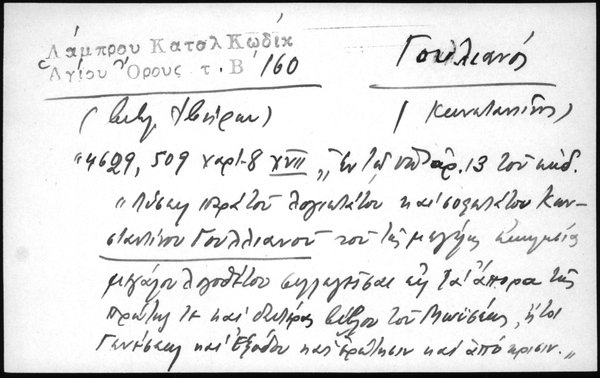 Λάμπρου Καταλ Κώδικ
Ἁγίου Ὄρους τ. Β 160
Γουλιανός
(Βιβλ Ἰβήρων)
(Κωνσταντῖνος)
"4629, 509 χαρτ-8 XVII „ Ἐν τῷ ὑπ' ἀρ. 13 τοῦ κώδ.
"Λύσεις παρὰ τοῦ λογιωτάτου καὶ σοφωτάτου Κων-
σταντίνου Γουλλιανοῦ τοῦ τῆς μεγάλης ἐκκλησίας
μεγάλου λογοθέτου συλλεγεῖσαι εἰς τὰ ἄπορα τῆς
πρώτης τε καὶ δευτέρας βίβλου τοῦ Μωϋσέως, ἤτοι
Γενέσεως καὶ Ἐξόδου κατ' ἐρώτησιν καὶ ἀπόκρισιν.„